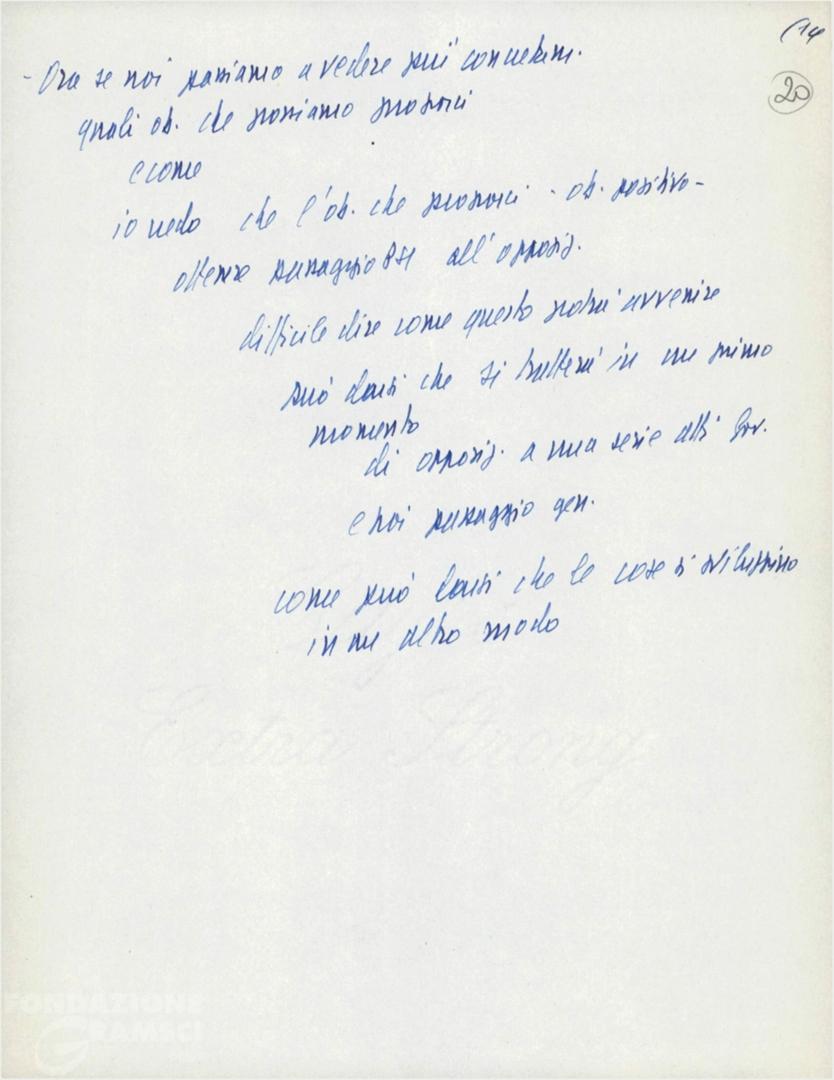 (14
20
- Ora se noi passiamo a vedere più concretam.
quali ob. che possiamo proporci
e come
io vedo che l'ob. che proporci - ob. positivo -
ottenere passaggio PSI all'opposiz.
difficile dire come questo potrà avvenire
può darsi che si tratterà in un primo
momento
di opposiz. a una serie atti Gov.
e poi passaggio gen.
come può darsi che le cose si sviluppino
in un altro modo
Extra Strong
FONDAZIONE
GRAMSCI